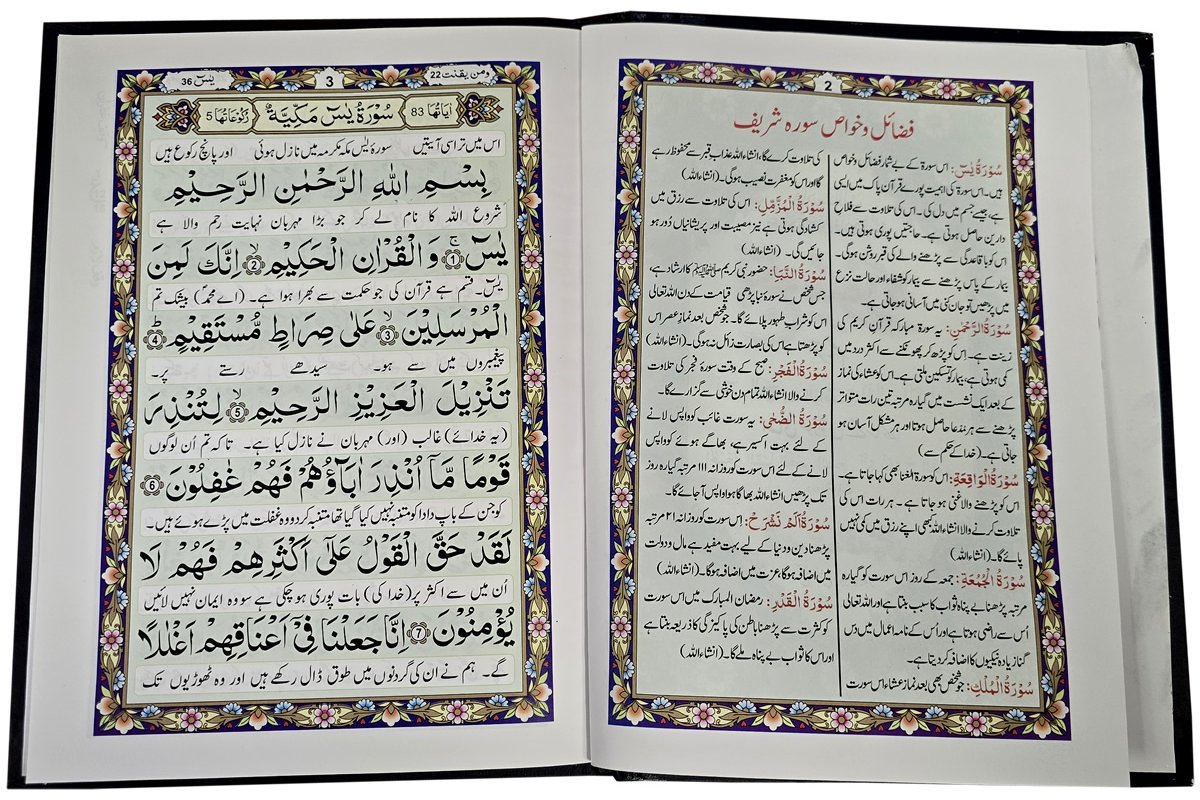 2
فضائل وخواص سورہ شریف
سُوْرَۃُ یٰسٓ: اس سورۃ کے بے شمار فضائل وخواص
ہیں۔اس سورۃ کی اہمیت پورے قرآن پاک میں ایسی
ہے جیسے جسم میں دل کی۔ اس کی تلاوت سے فلاحِ
دارین حاصل ہوتی ہے۔ حاجتیں پوری ہوتی ہیں۔
اس کو باقاعدگی سے پڑھنے والے کی قبر روشن ہوگی۔
بیمار کے پاس پڑھنے سے بیمار کو شفاء اور حالت نزع
میں پڑھیں تو جان کنی میں آسانی ہو جاتی ہے۔
سُوْرَۃُ الرَّحْمٰن: یہ سورۃ مبارکہ قرآن کریم کی
زینت ہے۔ اِس کو پڑھ کر پھونکنے سے اکثر درد میں
کمی ہوتی ہے، بیمار کو تسکین ملتی ہے۔اس کو عشاء کی نماز
کے بعد ایک نشست میں گیارہ مرتبہ تین رات متواتر
پڑھنے سے ہر مُدعا حاصل ہوتا اور ہر مشکل آسان ہو
جاتی ہے۔ (خدا کے حکم سے)
سُوْرَۃُ الْوَاقِعَۃِ: اس کو سورۃ الغنا بھی کہا جاتا ہے۔
اس کو پڑھنے والا غنی ہو جاتا ہے۔ ہر رات اس کی
تلاوت کرنے والا انشاءاللہ کبھی اپنے رزق میں کمی نہیں
پائے گا۔ (انشاءاللہ)
سُوْرَۃُ الْجُمُعَۃِ: جمعہ کے روز اس سورت کو گیارہ
مرتبہ پڑھنا بے پناہ ثواب کا سبب بنتا ہے اور اللہ تعالٰی
اُس سے راضی ہوتا ہے اور اُس کے نامہ اعمال میں دس
گنا زیادہ نیکیوں کا اضافہ کر دیتا ہے۔
سُوْرَۃُ الْمُلْكِ: جو شخص بھی بعد نماز عشاء اس سورت
کی تلاوت کرے گا، انشاءاللہ عذابِ قبر سے محفوظ رہے
گا اور اس کو مغفرت نصیب ہو گی۔ (انشاءاللہ)
سُوْرَۃُ الْمُزَّمِّلِ: اس کی تلاوت سے رزق میں
کشادگی ہوتی ہے نیز مصیبت اور پریشانیاں دُور ہو
جائیں گی۔ (انشاءاللہ)
سُوْرَۃُ النَّبَاِ: حضور نبی کریم ﷺ کا ارشاد ہے،
جس شخص نے سورۃ نبا پڑھی قیامت کے دن اللہ تعالٰی
اس کو شراب طہور پلائے گا۔ جو شخص بعد نماز عصر اس
کو پڑھتا ہے اس کی بصارت زائل نہ ہوگی۔ (انشاءاللہ)
سُوْرَۃُ الْفَجْرِ: صبح کے وقت سورۃ فجر کی تلاوت
کرنے والا انشاءاللہ تمام دن خوشی سے گزارے گا۔
سُوْرَۃُ الضُّحٰی: یہ سورت غائب کو واپس لانے
کے لئے بہت اکسیر ہے، بھاگے ہوئے کو واپس
لانے کے لئے اس سورت کو روزانہ ۱۱۱ مرتبہ گیارہ روز
تک پڑھیں انشاءاللہ بھاگا ہوا واپس آ جائے گا۔
سُوْرَۃُ اَلَمْ نَشْرَحْ: اِس سورت کو روزانہ ۲۱ مرتبہ
پڑھنا دین و دنیا کے لیے بہت مفید ہے مال و دولت
میں اضافہ ہو گا عزت میں اضافہ ہو گا۔ (انشاءاللہ)
سُوْرَۃُ الْقَدْرِ: رمضان المبارک میں اس سورت
کو کثرت سے پڑھنا باطن کی پاکیزگی کا ذریعہ بنتا ہے
اور اس کا ثواب بے پناہ ملے گا۔ (انشاءاللہ)
ومن یقنت 22
3
یٰسٓ 36
اٰیَاتُهَا 83
سُوْرَةُ يٰسٓ مَكِّيَّةٌ
رُكُوْعَاتُهَا 5
اس میں تراسی آیتیں سورۂ یٰس مکہ مکرمہ میں نازل ہوئی اور پانچ رکوع ہیں
بِسْمِ اللّٰهِ الرَّحْمٰنِ الرَّحِيْمِ
شروع اللہ کا نام لے کر جو بڑا مہربان نہایت رحم والا ہے
يٰسٓ ۚ‏﴿1﴾ وَ الْقُرْاٰنِ الْحَكِيْمِ ۙ‏﴿2﴾ اِنَّكَ لَمِنَ
یٰسٓ۔ قسم ہے قرآن کی جو حکمت سے بھرا ہوا ہے۔ (اے محمدؐ) بیشک تم
الْمُرْسَلِيْنَ ۙ‏﴿3﴾ عَلٰى صِرَاطٍ مُّسْتَقِيْمٍ ؕ‏﴿4﴾
پیغمبروں میں سے ہو۔ سیدھے رستے پر۔
تَنْزِيْلَ الْعَزِيْزِ الرَّحِيْمِ ۙ‏﴿5﴾ لِتُنْذِرَ
(یہ خدائے) غالب (اور) مہربان نے نازل کیا ہے۔ تاکہ تم اُن لوگوں
قَوْمًا مَّاۤ اُنْذِرَ اٰبَآؤُهُمْ فَهُمْ غٰفِلُوْنَ ﴿6﴾
کو جن کے باپ دادا کو متنبہ نہیں کیا گیا تھا متنبہ کر دو وہ غفلت میں پڑے ہوئے ہیں۔
لَقَدْ حَقَّ الْقَوْلُ عَلٰۤى اَكْثَرِهِمْ فَهُمْ لَا
اُن میں سے اکثر پر (خدا کی) بات پوری ہو چکی ہے سو وہ ایمان نہیں لائیں
يُؤْمِنُوْنَ ﴿7﴾ اِنَّا جَعَلْنَا فِىْۤ اَعْنَاقِهِمْ اَغْلٰلًا
گے۔ ہم نے ان کی گردنوں میں طوق ڈال رکھے ہیں اور وہ ٹھوڑیوں تک